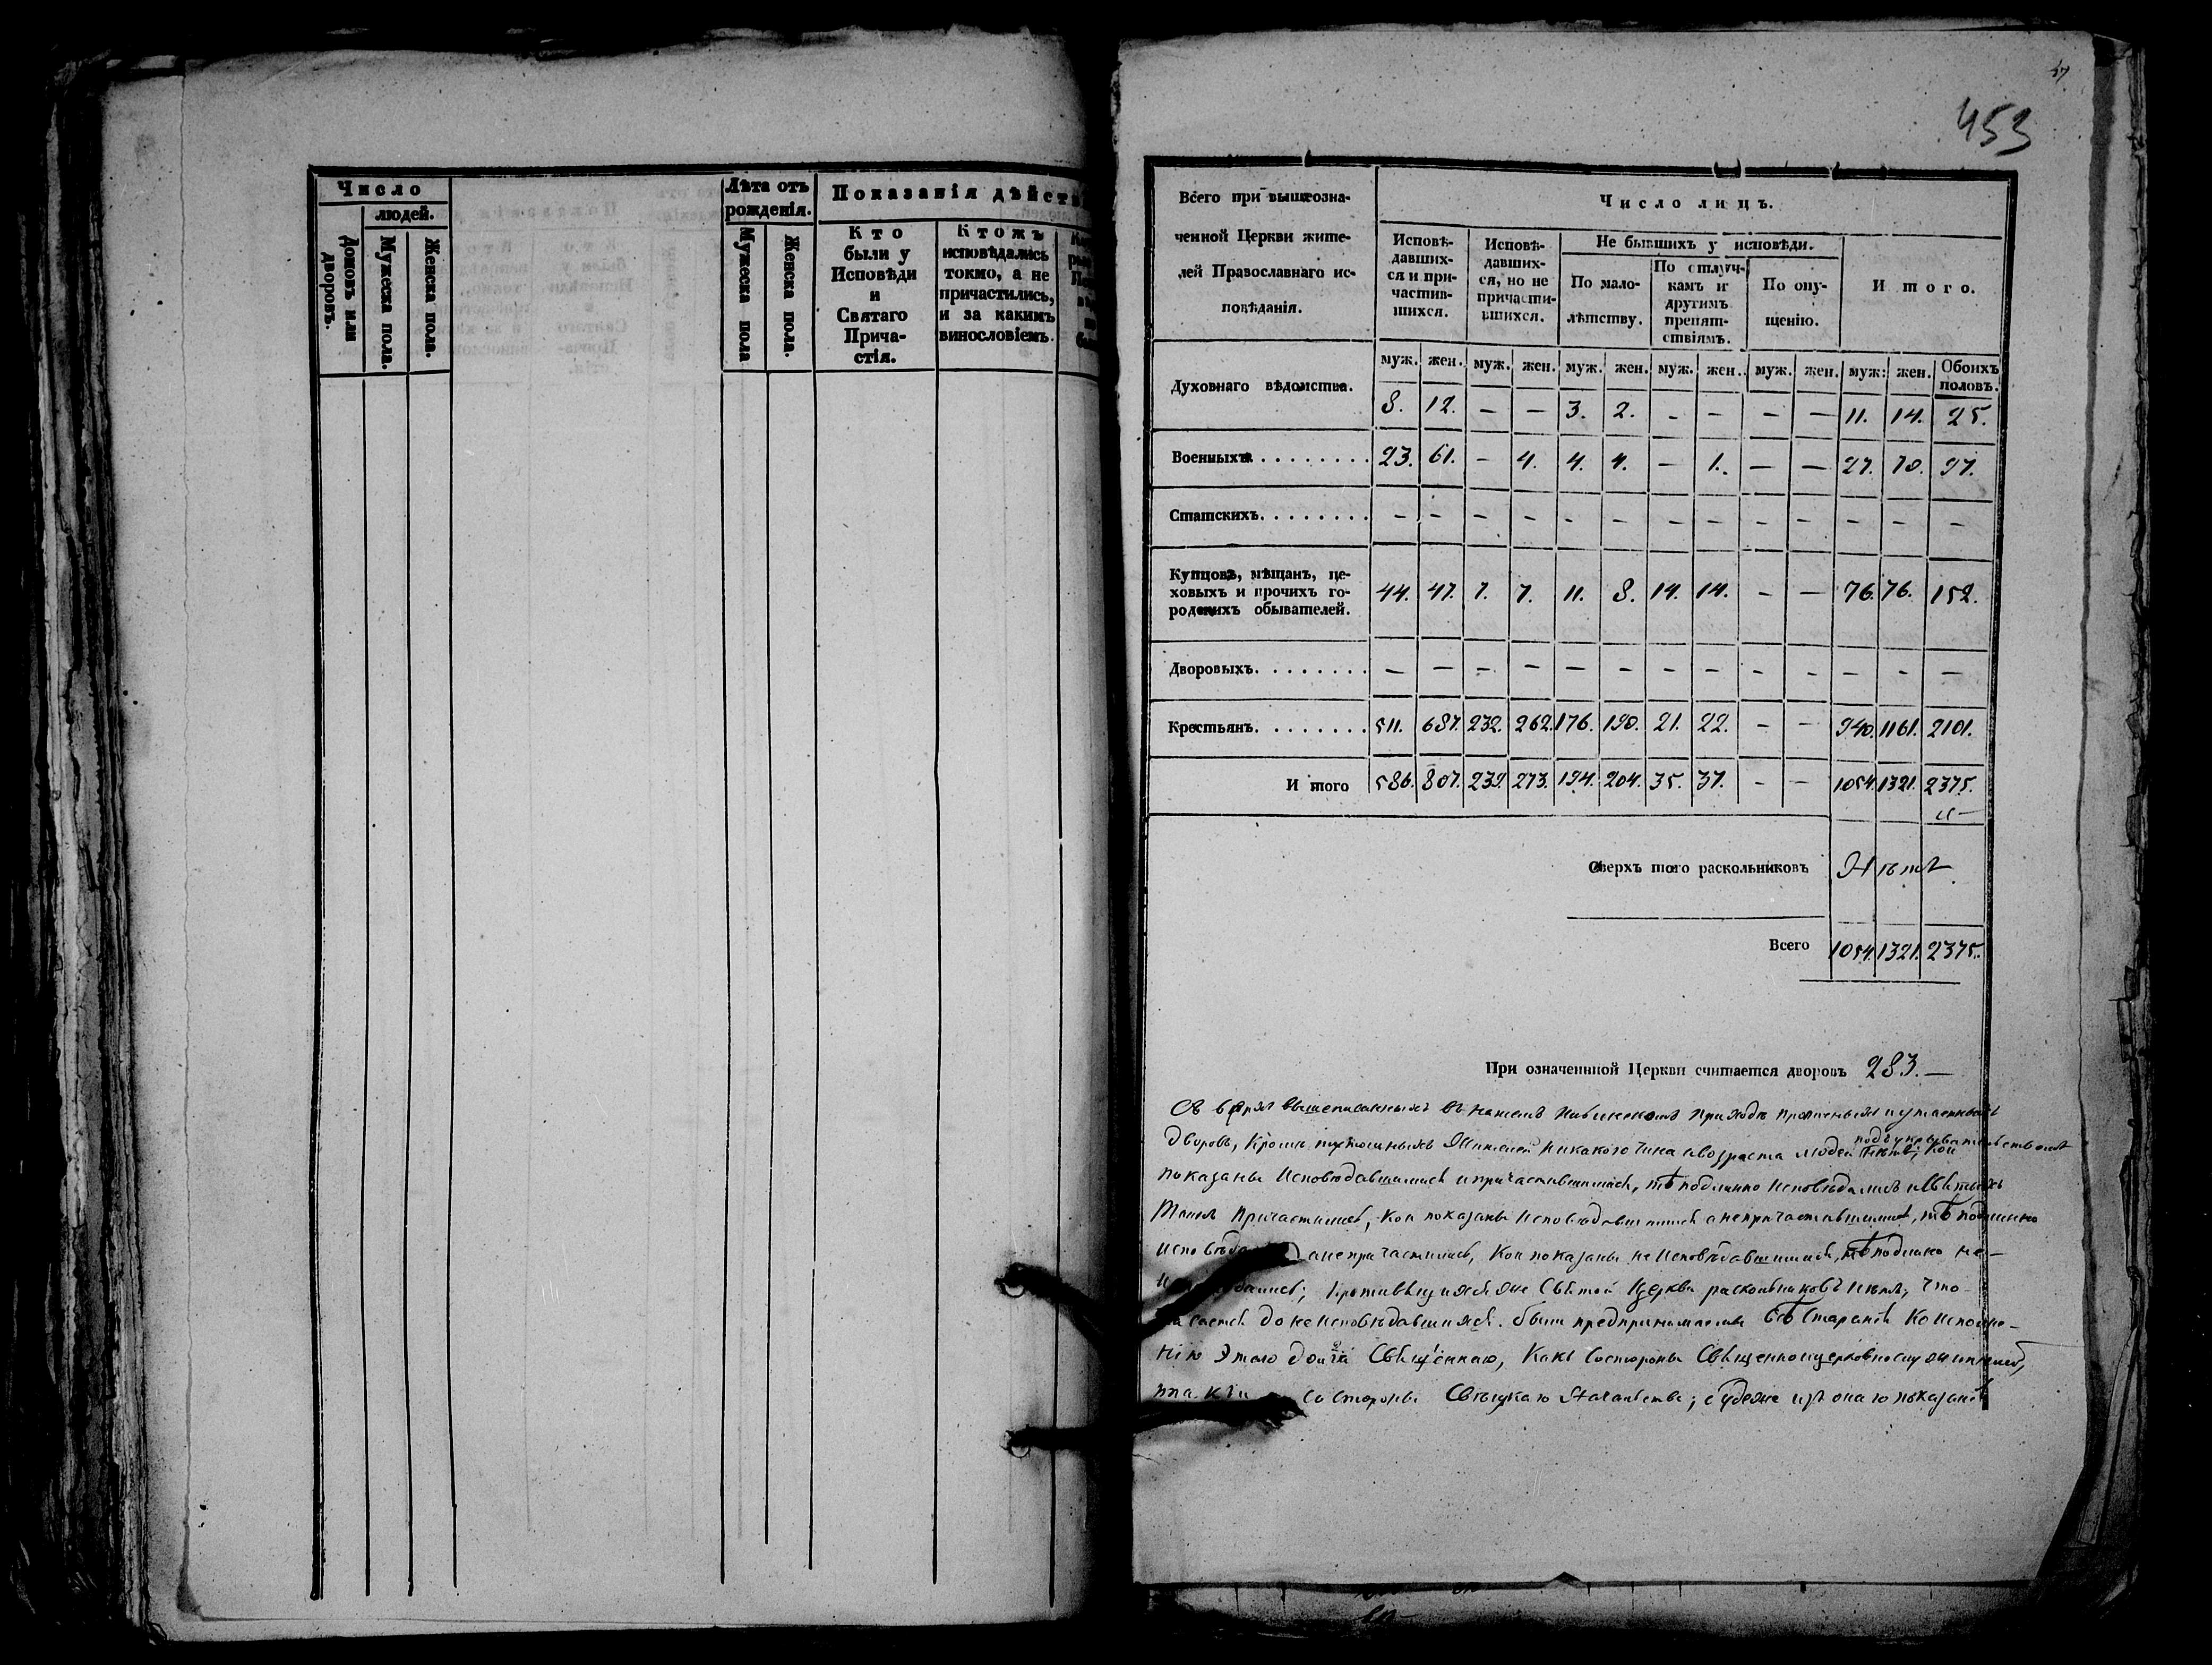 Число
людей.
Домовъ или дворовъ.
Мужеска пола.
Женска пола.
Лѣта отъ рожденія.
Мужеска пола
Женска пола.
Показанія дѣйст
Кто
были у
Исповѣди
и
Святаго
Прича-
стія.
Ктожъ
исповѣдались
токмо, а не
причастились,
и за какимъ
винословіемъ.
453
Всего при вышеозна-
ченной Церкви жите-
лей Православнаго ис-
повѣданія.
Число лицъ.
Исповѣ-
давших-
ся и при-
частив-
шихся.
Исповѣ-
давших-
ся, но не
причасти-
вшихся.
Не бывшихъ у исповѣди.
По мало-
лѣтству.
По отлуч-
камъ и
другимъ
препят-
ствіямъ.
По опу-
щенію.
Итого.
муж. жен. муж. жен. муж. жен. муж. жен. муж. жен. муж: жен. Обоихъ половъ.
Духовнаго вѣдомства. 8. 12. — — 3. 2. — — — — 11. 14. 25.
Военныхъ. . . . . . . . . 23. 61. — 4. 4. 4. — 1. — — 27. 70. 97.
Статскихъ. . . . . . . . — — — — — — — — — — — — —
Купцовъ, мѣщанъ, це-
ховыхъ и прочихъ го-
родскихъ обывателей. 44. 47. 7. 7. 11. 8. 14. 14. — — 76. 76. 152.
Дворовыхъ. . . . . . . . — — — — — — — — — — — — —
Крестьянъ. . . . . . . . 511. 687. 232. 262. 176. 190. 21. 22. — — 940. 1161. 2101.
Итого 586. 807. 239. 273. 194. 204. 35. 37. — — 1054. 1321. 2375.
Сверхъ того раскольниковъ Нѣтъ
Всего 1054. 1321. 2375.
При означенной Церкви считается дворовъ 283.—
вышеписанныхъ въ нашемъ приходѣ
дворовъ, Кромѣ никакого чина и возраста людей нѣтъ; Кои
показаны Исповѣдавшимися и причастившимися, тѣ подлинно исповѣдались и Святыхъ
Таинъ Причастились, Кои показаны Исповѣдавшимися а непричастившимися, тѣ подлинно
анепричастились, Кои показаны не Исповѣдавшимися, тѣ подлинно не—
Святой Церкви раскольниковъ нѣтъ; что
до неисповѣдавшихся. были предпринимаемы Старанія Ко исполне-
нію Этого долга Священнаго, Какъ Состороны Священноцерковнослужителей,
Состороны Началства; изъ онаго показанія